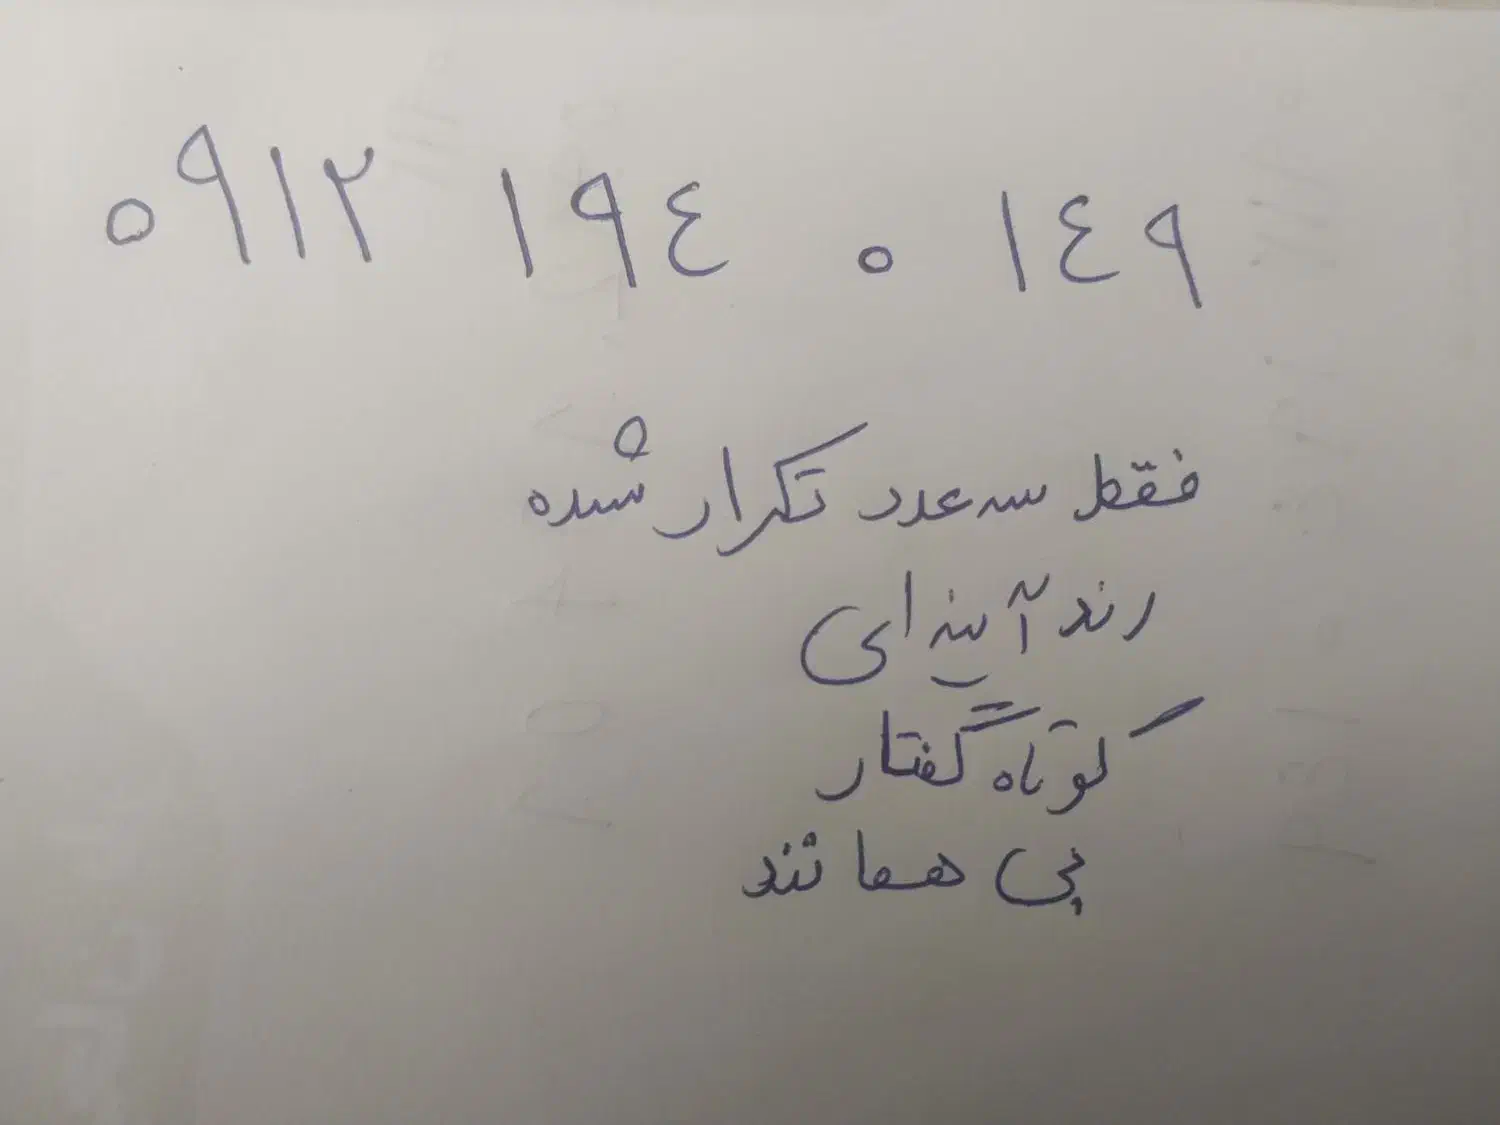 ۰۹۱۲ ۱۹٤ ۰ ۱٤۹
فقط سه عدد تکرار شده
رند آینه ای
کوتاه گفتار
بی همانند